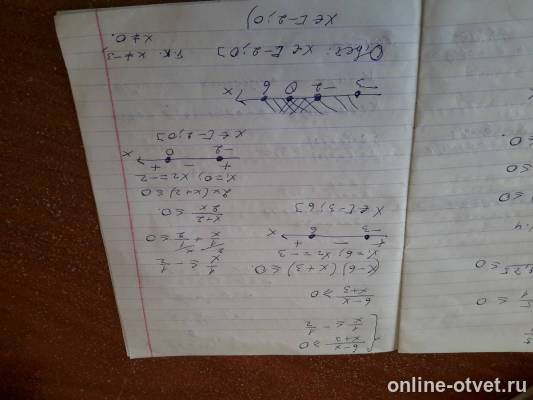 { (6-x)/(x+3) ≥ 0
1/x ≤ -1/2
(6-x)/(x+3) ≥ 0
(x-6)(x+3) ≤ 0.
x=6; x₂=-3
+ - +
-3 6 x
x∈[-3;6]
1/x ≤ -1/2
1/x + 1/2 ≤ 0
(x+2)/2x ≤ 0.
2x(x+2) ≤ 0
x=0; x₂=-2
+ - +
-2 0 x
x∈[-2;0]
-3 -2 0 6 x
Ответ: x∈[-2;0] т.к. x≠-3,
x≠0.
x∈[-2;0)
online-otvet.ru